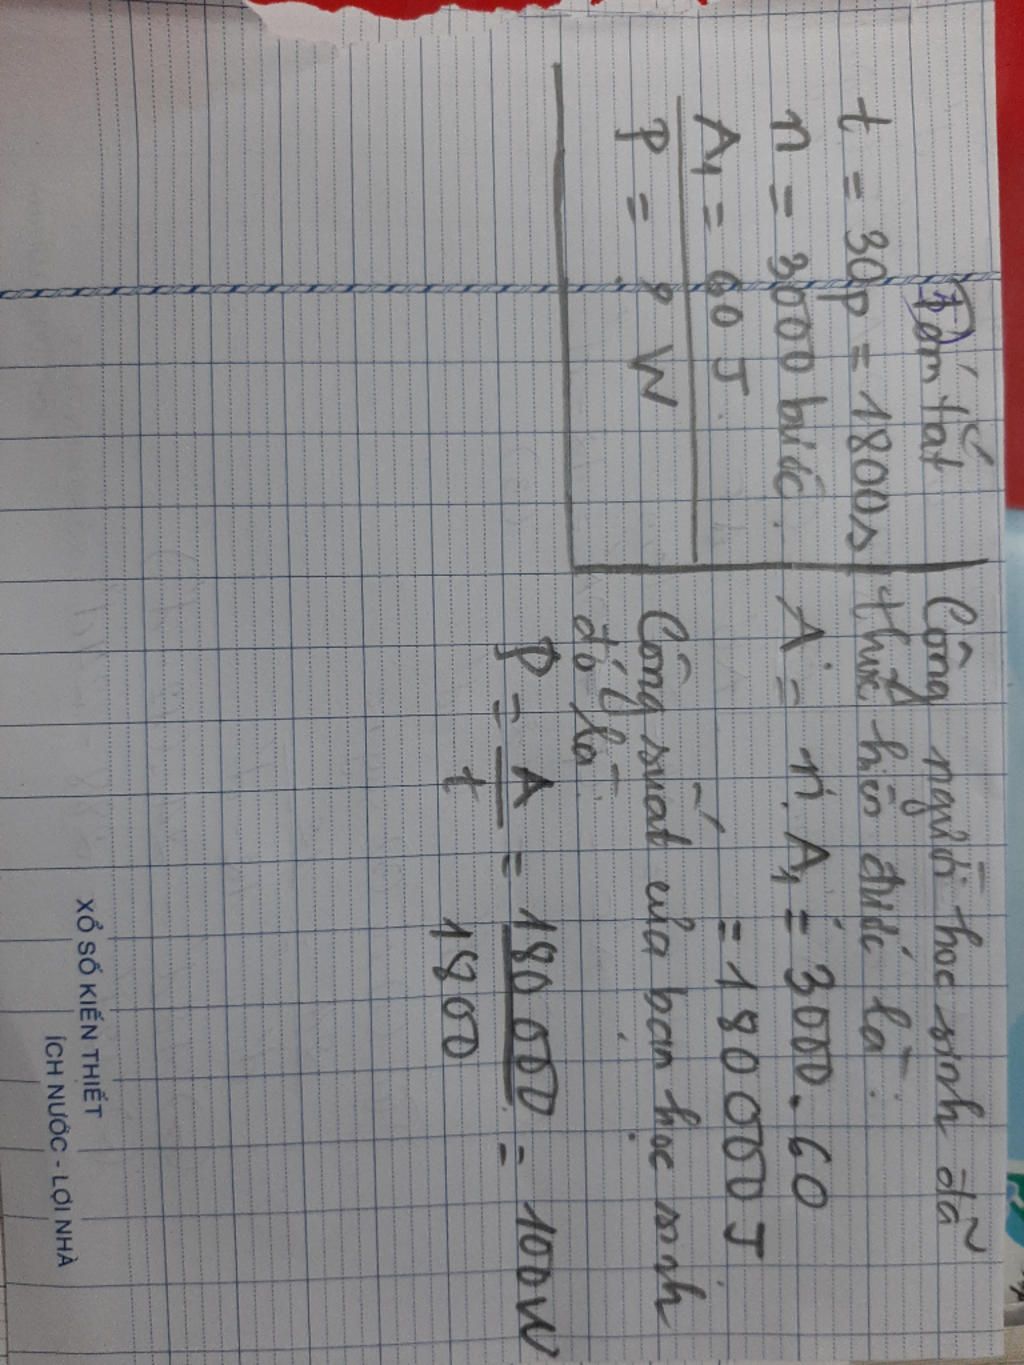 Tóm tắt
t = 30p = 1800s
n = 3000 bước.
A₁ = 60 J
P = ? W
Công người học sinh đã
thực hiện được là:
A = n. A₁ = 3000.60
= 180 000 J
Công suất của bạn học sinh
đó là
P = A/t = 180 000/1800 = 100W
XỔ SỐ KIẾN THIẾT
ÍCH NƯỚC - LỢI NHÀ